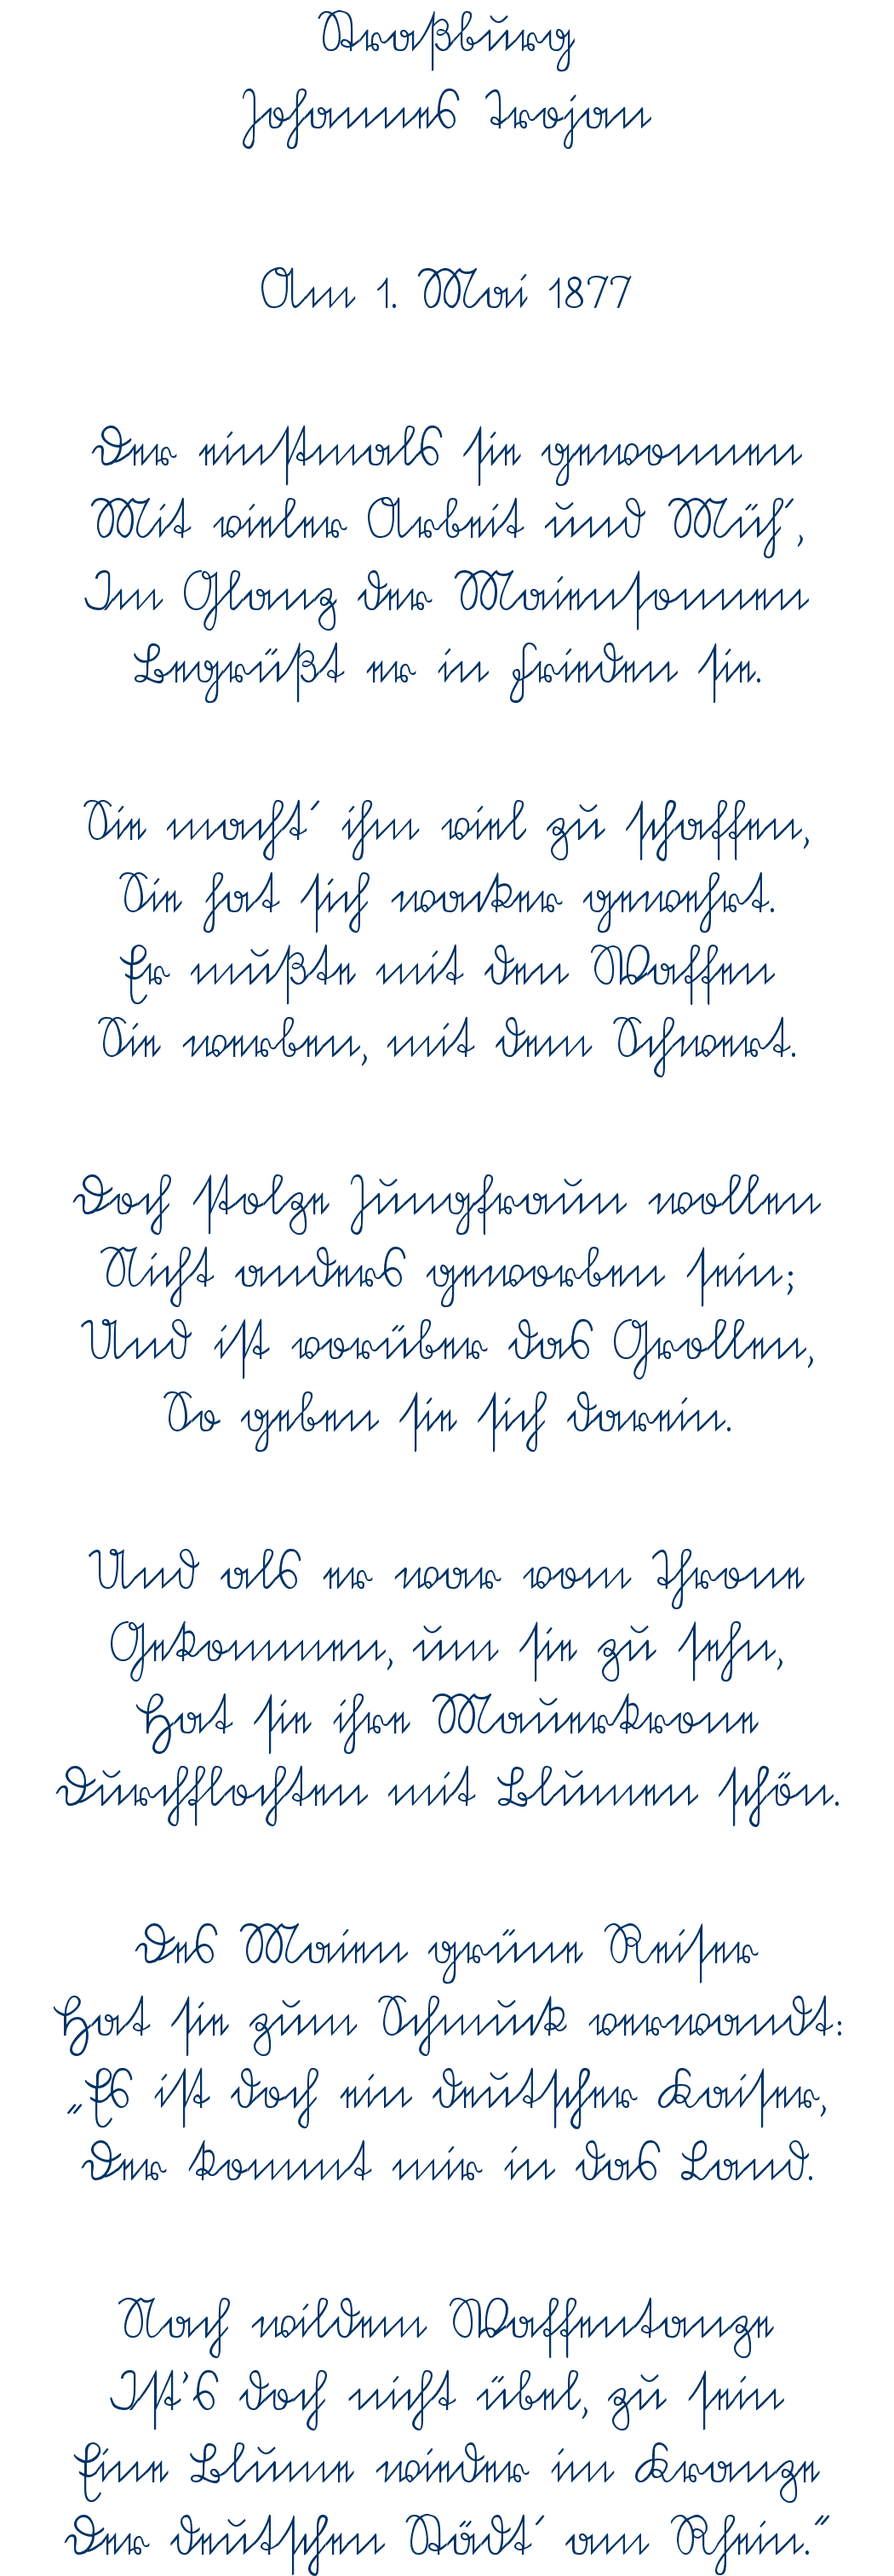 Straßburg
Johannes Trojan
Am 1. Mai 1877
Der einstmals sie gewonnen
Mit vieler Arbeit und Müh´,
Im Glanz der Maiensonnen
Begrüßt er in Frieden sie.
Sie macht´ ihm viel zu schaffen,
Sie hat sich wacker gewehrt.
Er mußte mit den Waffen
Sie werben, mit dem Schwert.
Doch stolze Jungfraun wollen
Nicht anders geworben sein;
Und ist vorüber das Grollen,
So geben sie sich darein.
Und als er war vom Throne
Gekommen, um sie zu sehn,
Hat sie ihre Mauerkrone
Durchflochten mit Blumen schön.
Des Maien grüne Reiser
Hat sie zum Schmuck verwandt:
„Es ist doch ein deutscher Kaiser,
Der kommt mir in das Land.
Nach wildem Waffentanze
Ist’s doch nicht übel, zu sein
Eine Blume wieder im Kranze
Der deutschen Städt´ am Rhein.“